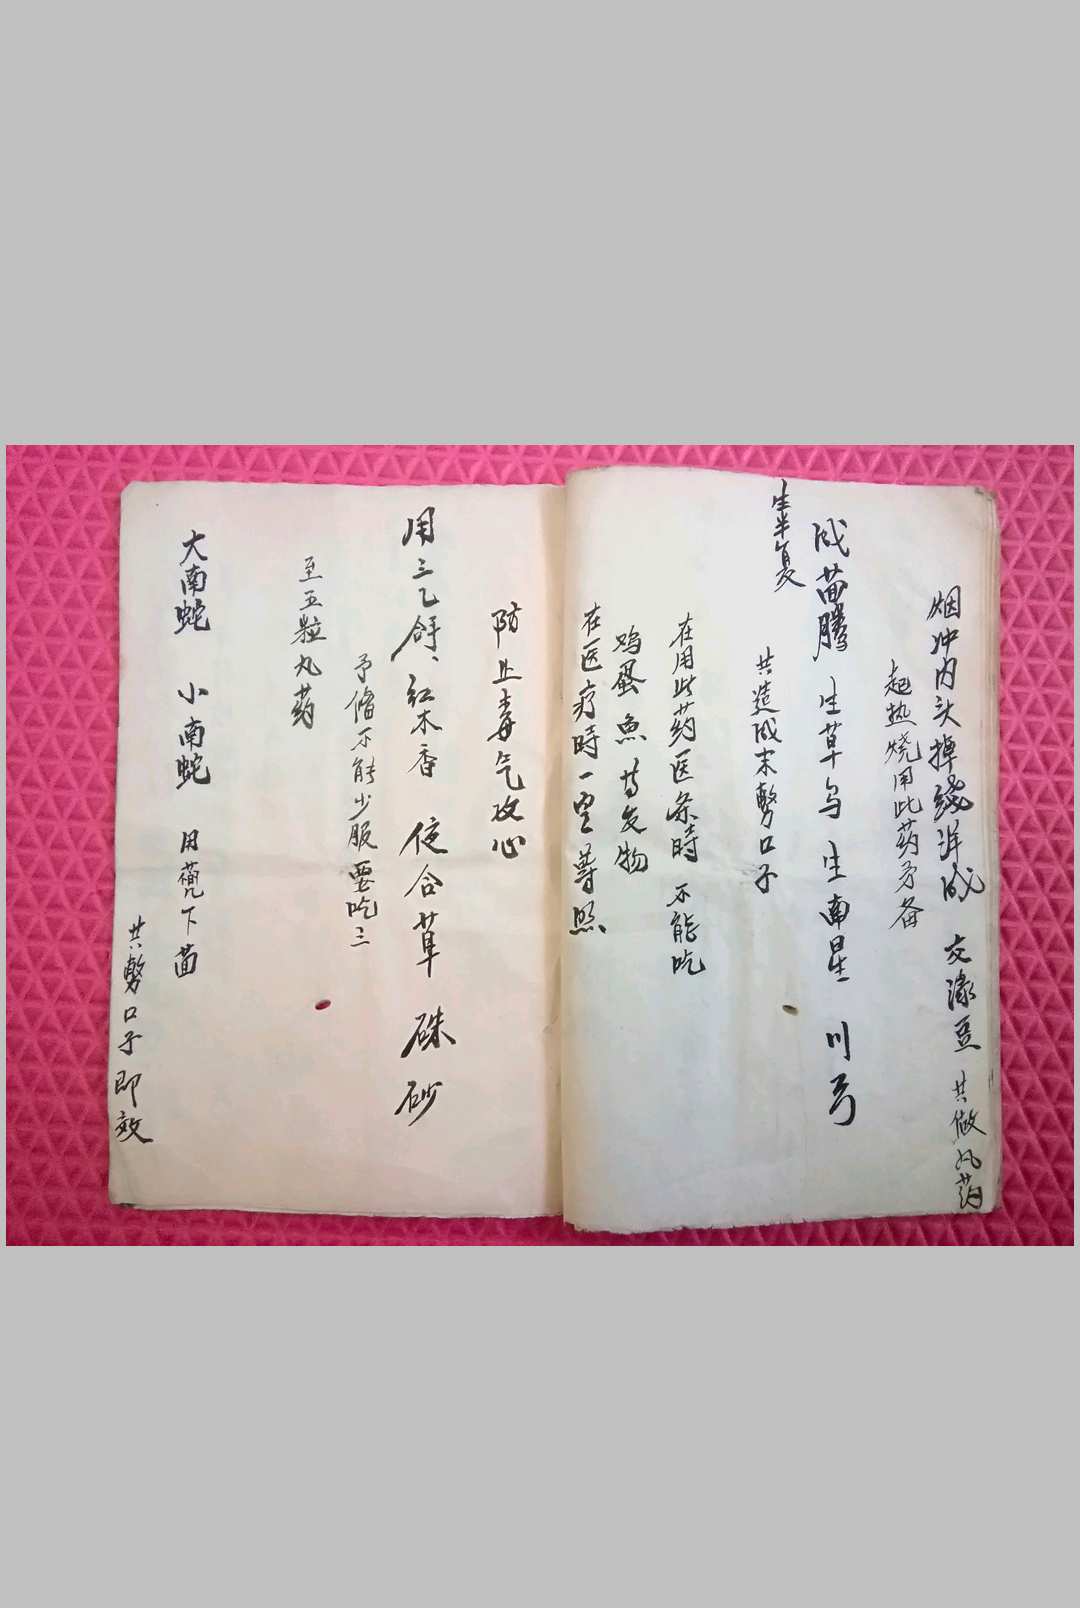 烟冲内头掉线洋成 交濠豆 共做丸药
起热烧用此药予备
成苗腾 生草乌 生南星 川弓
生半夏
共造成末敷口子
在用此药医条時 不能吃
鸡蛋 魚 等发物
在医疗時一定尊照
防止毒气攻心
用三七 红木香 侼合草 硃砂
予俻不能少服要吃三
至五粒丸药
大南蛇 小南蛇 用 下茴
共敷口子即效